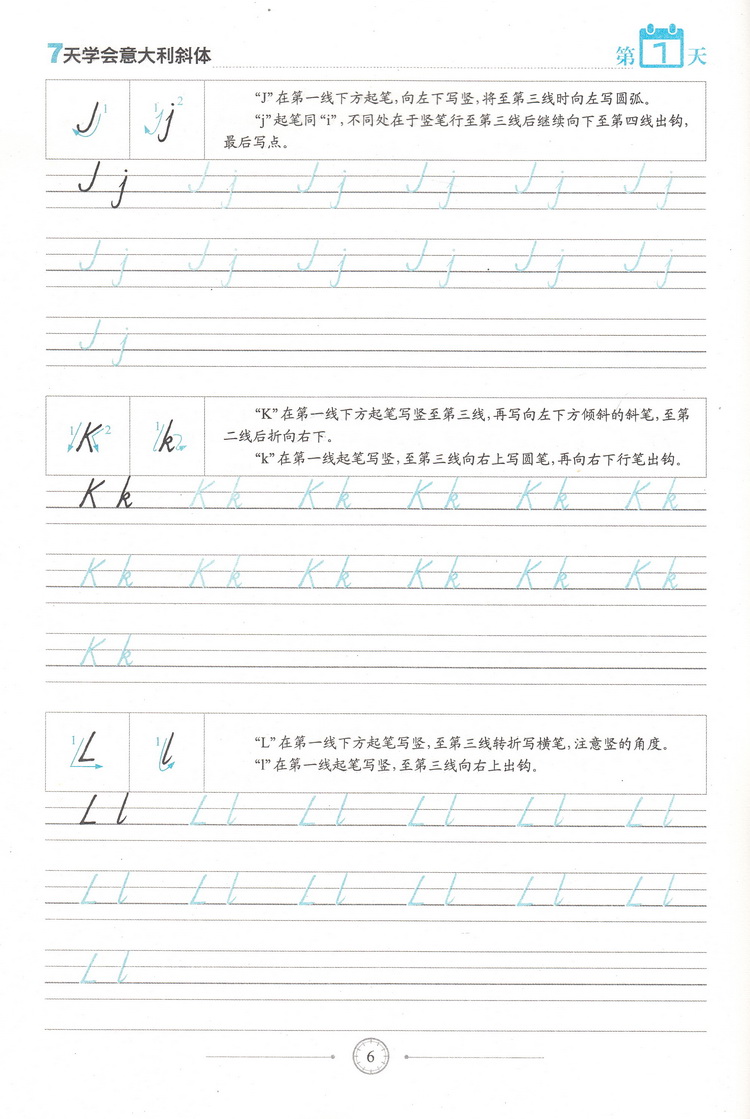 7天学会意大利斜体
第1天
J 1 j 2
“J”在第一线下方起笔，向左下写竖，将至第三线时向左写圆弧。
“j”起笔同“i”，不同处在于竖笔行至第三线后继续向下至第四线出钩，
最后写点。
J j J j J j J j J j J j
J j J j J j J j J j J j
J j
1 K 2 1 k
“K”在第一线下方起笔写竖至第三线，再写向左下方倾斜的斜笔，至第
二线后折向右下。
“k”在第一线起笔写竖，至第三线向右上写圆笔，再向右下行笔出钩。
K k K k K k K k K k K k
K k K k K k K k K k K k
K k
1 L 1 l
“L”在第一线下方起笔写竖，至第三线转折写横笔，注意竖的角度。
“l”在第一线起笔写竖，至第三线向右上出钩。
L l L l L l L l L l L l
L l L l L l L l L l L l
L l
6